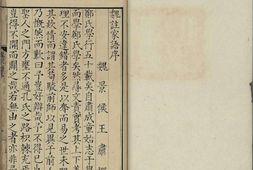 魏註家語序
魏景侯王肅
鄭氏學行五十載矣自肅成童始志于學
而學鄭氏學矣然尋文責實考其上下義
理不安違錯者多是以奪而易之世未明
其款情而謂其苟駁前師以見異于前人
乃慨然而歎曰予豈好難哉予不得已也
聖人之門方壅不通孔氏之路枳棘充焉
豈得不開而闢之哉若無由之者亦非予